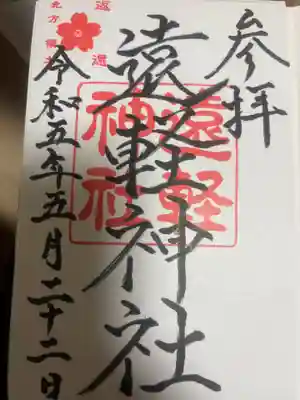 参拝
遠軽神社
遠軽
神社
令和五年五月二十二日
返還
北方領土